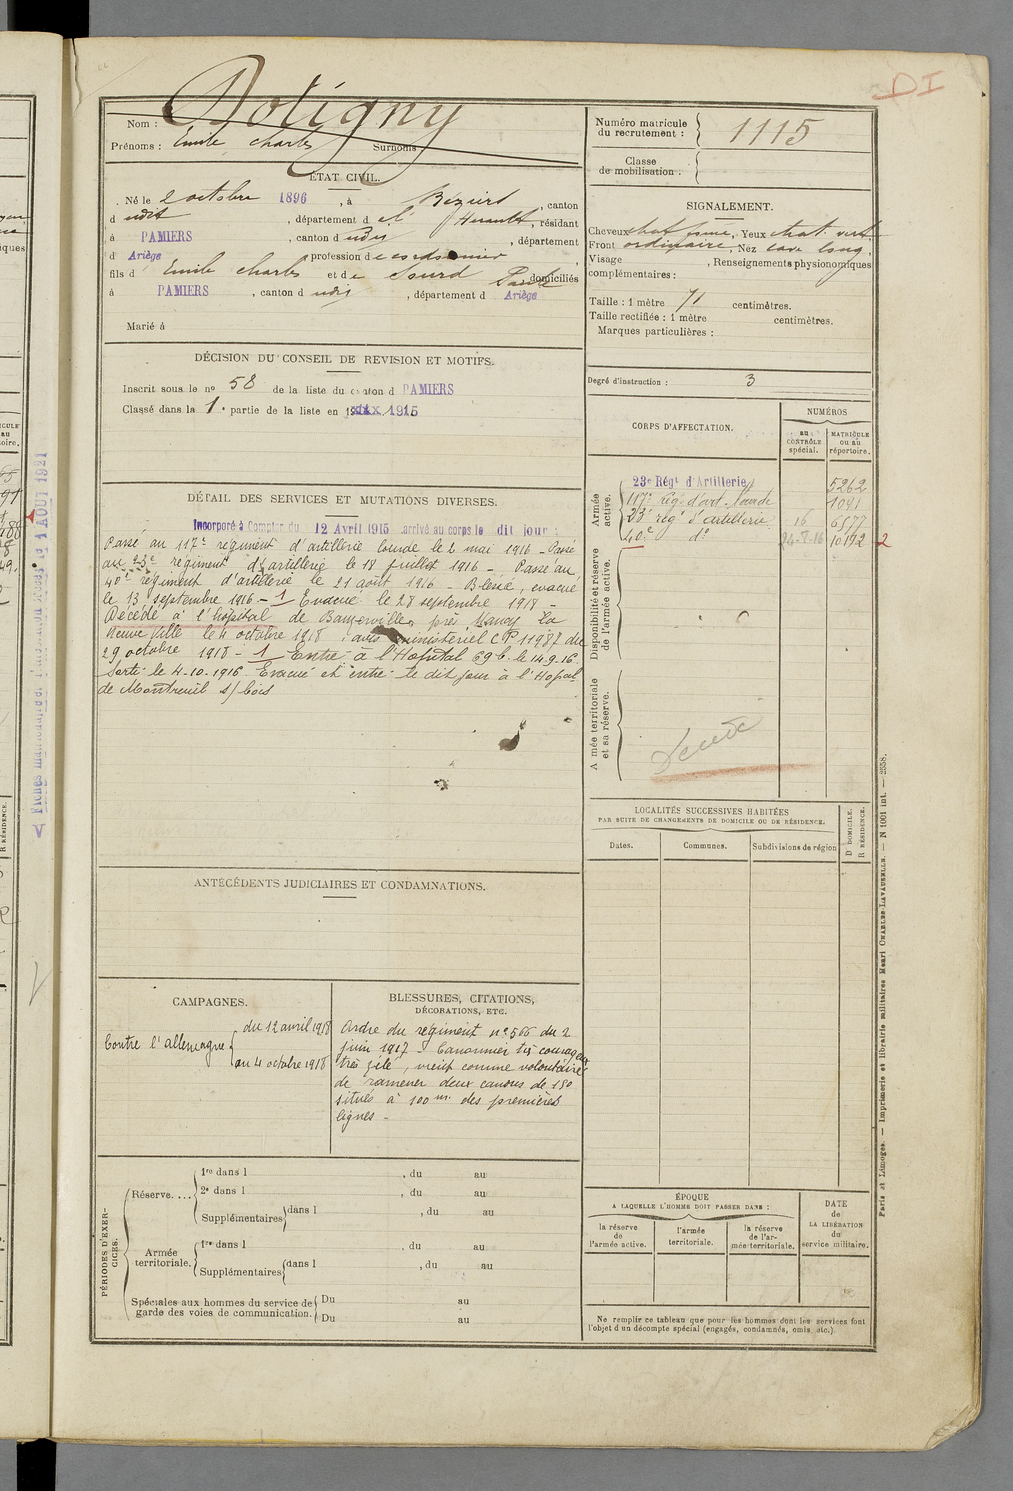 DI
Nom : Dotigny
Prénoms : Emile Charles Surnoms
Numéro matricule
du recrutement : 1115
Classe
de mobilisation :
ÉTAT CIVIL.
Né le 2 octobre 1896, à Béziers, canton
d udit, département de l' Herault, résidant
à PAMIERS, canton d udit, département
d Ariège, profession de cordonnier,
fils d Emile Charles et de Sourd Paule domiciliés
à PAMIERS, canton d udit, département d Ariège
Marié à
SIGNALEMENT.
Cheveux chat foncé, Yeux chat. vert
Front ordinaire, Nez cave long,
Visage , Renseignements physionomiques
complémentaires :
Taille : 1 mètre 71 centimètres.
Taille rectifiée : 1 mètre centimètres.
Marques particulières :
Degré d'instruction : 3
DÉCISION DU CONSEIL DE REVISION ET MOTIFS.
Inscrit sous le nº 58 de la liste du canton d PAMIERS
Classé dans la 1e partie de la liste en 1915
CORPS D'AFFECTATION.
NUMÉROS
au
CONTRÔLE
spécial.
MATRICULE
ou au
répertoire.
Armée
active.
23e Régt d'Artillerie 5262
117e reg. d'art. lourde 1041
23e regt d'artillerie 16 6577
40e do 24-8-16 10192 2
Disponibilité et réserve
de l'armée active.
Armée territoriale
et sa réserve.
DÉTAIL DES SERVICES ET MUTATIONS DIVERSES.
Incorporé à Compter du 12 Avril 1915 arrivé au corps le dit jour :
Passé au 117e regiment d'artillerie lourde le 2 mai 1916 - Passé
au 23e regiment d'artillerie le 18 juillet 1916 - Passé au
40e regiment d'artillerie le 21 août 1916 - Blessé, evacué
le 13 septembre 1916 - 1 Evacué le 28 septembre 1918 -
Décédé à l'hôpital de près Nancy la
Neuveville le 4 octobre 1918. avis ministeriel CP 11987 du
29 octobre 1918 - 1 Entré à l'Hopital 69 b. le 14.9.16
Sorti le 4.10.1916 Evacué et entré le dit jour à l'Hopal
de Montreuil s/ bois
LOCALITÉS SUCCESSIVES HABITÉES
PAR SUITE DE CHANGEMENTS DE DOMICILE OU DE RÉSIDENCE.
Dates.
Communes.
Subdivisions de région
D DOMICILE.
R RÉSIDENCE.
ANTÉCÉDENTS JUDICIAIRES ET CONDAMNATIONS.
CAMPAGNES.
Contre l'allemagne
du 12 avril 1915
au 4 octobre 1918
BLESSURES, CITATIONS,
DÉCORATIONS, ETC.
Ordre du regiment nº 566 du 2
juin 1917 - Canonnier très courageux
très zélé, vient comme volontaire
de ramener deux canons de 150
situés à 100 m. des premières
lignes -
PÉRIODES D'EXERCICES.
Réserve....
1re dans l , du au
2e dans l , du au
Supplémentaires dans l , du au
Armée
territoriale.
1re dans l , du au
Supplémentaires dans l , du au
Spéciales aux hommes du service de
garde des voies de communication.
Du au
Du au
ÉPOQUE
A LAQUELLE L'HOMME DOIT PASSER DANS :
la réserve
de
l'armée active.
l'armée
territoriale.
la réserve
de l'armée territoriale.
DATE
de
LA LIBÉRATION
du
service militaire.
Ne remplir ce tableau que pour les hommes dont les services font
l'objet d'un décompte spécial (engagés, condamnés, omis, etc.).
Paris et Limoges. — Imprimerie et librairie militaires Henri CHARLES-LAVAUZELLE. — N 1001 int. — 2558.
1 AOUT 1921